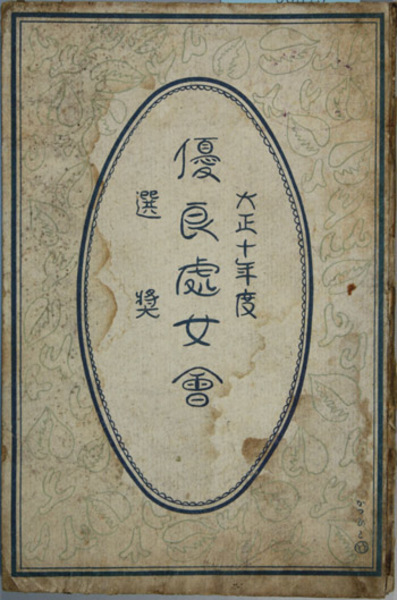 大正十年度
優良處女會
選奨